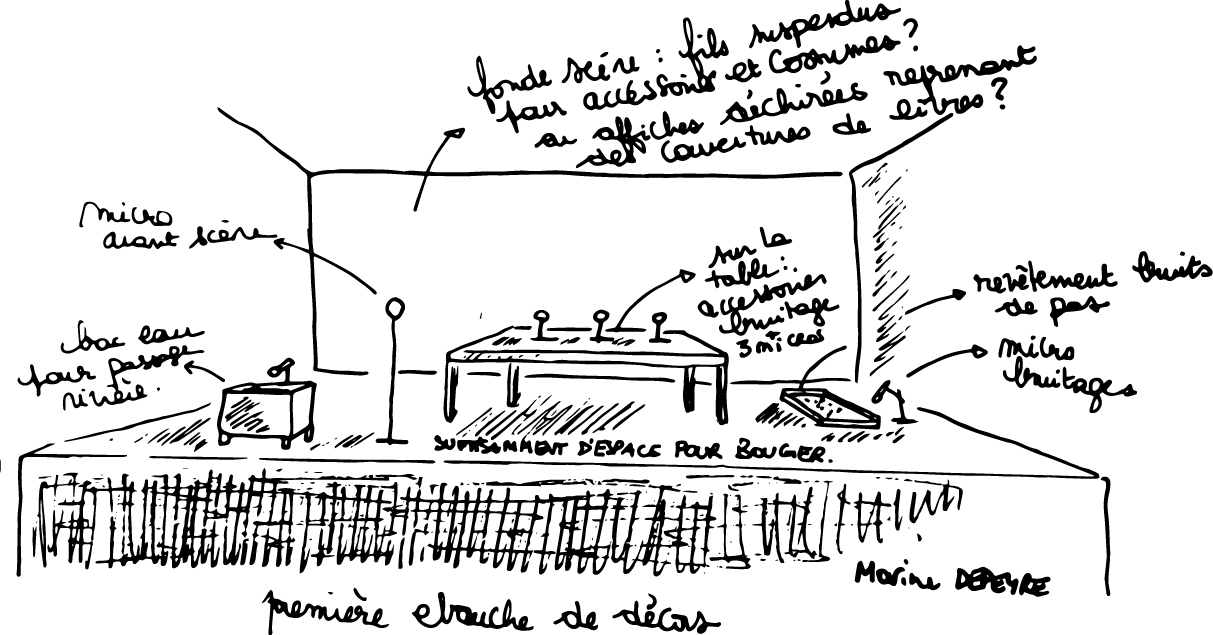 fond de scène : fils suspendus
pour accessoires et costumes ?
ou affiches déchirées reprenant
des couvertures de livres ?
micro
avant scène
sur la
table :
accessoires
bruitage
3 micros
revêtement bruits
de pas
bac eau
pour passage
rivière.
micro
bruitages
SUFFISAMMENT D'ESPACE POUR BOUGER.
Marine DEPEYRE
première ebauche de décors